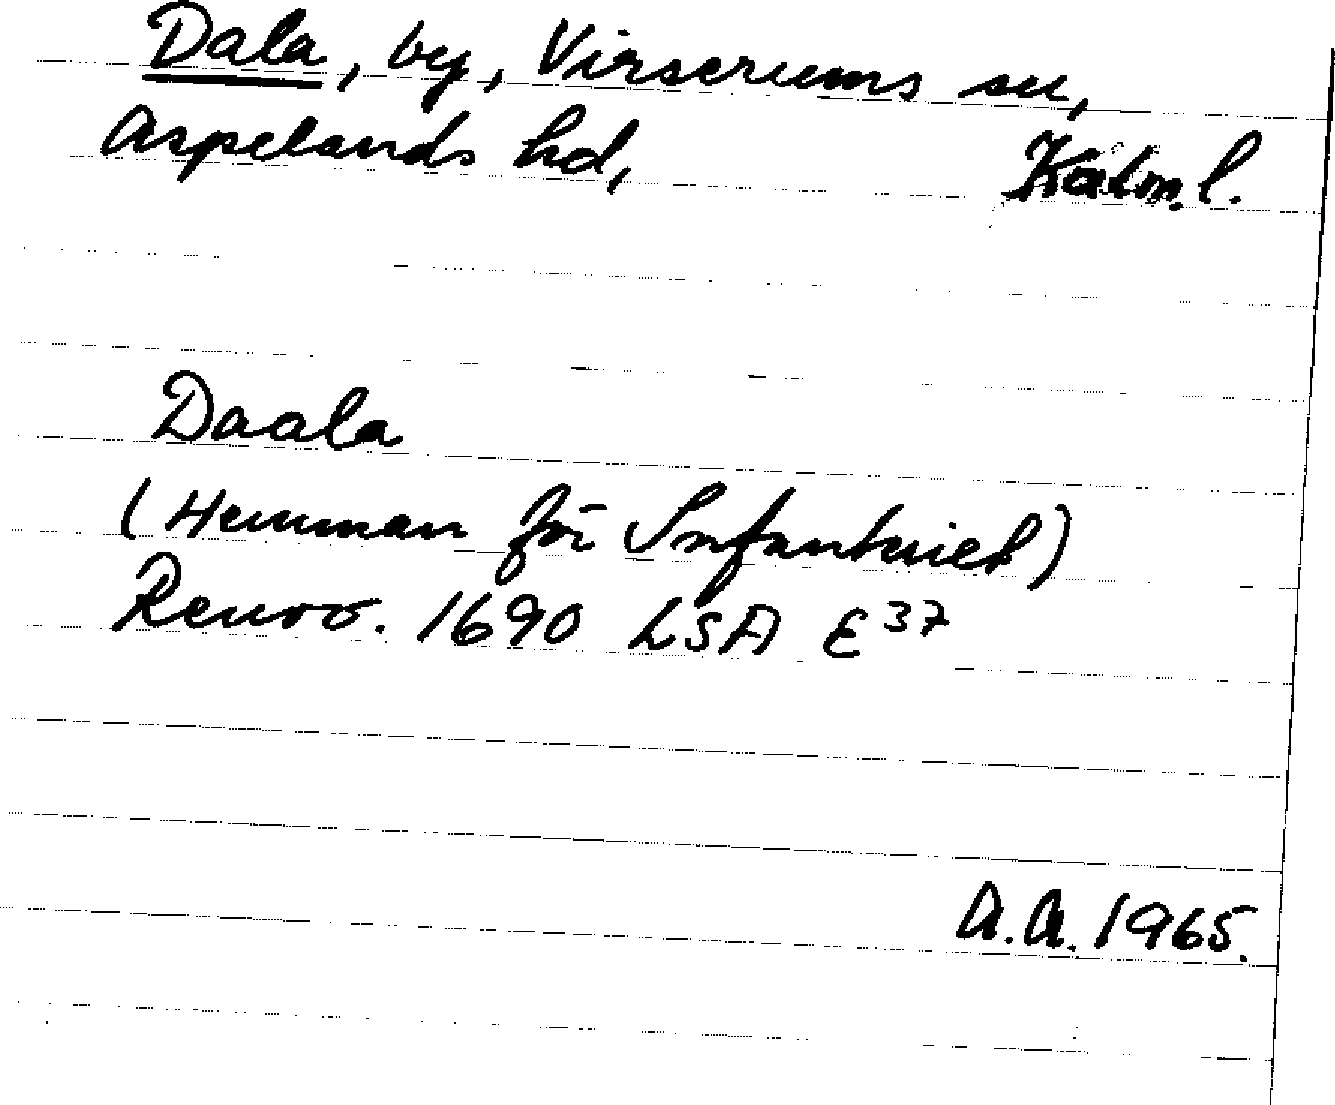 Dala, by, Virserums sn,
Aspelands hd, Kalm. l.
Daala
(Hemman för Infanteriet)
Renov. 1690 LSA E 37
A.A. 1965.